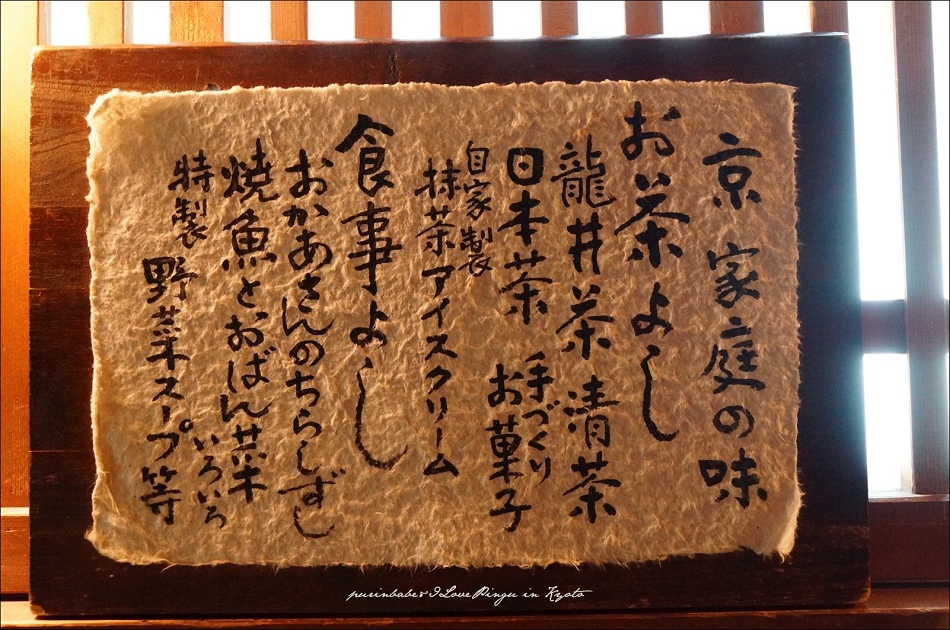 京 家庭の味
お茶よし
龍井茶 清茶
日本茶 手づくりお菓子
自家製
抹茶アイスクリーム
食事よし
おかあさんのちらしずし
焼魚とおばん菜いろいろ
特製 野菜スープ等
purinbabe & I Love Pingu in Kyoto